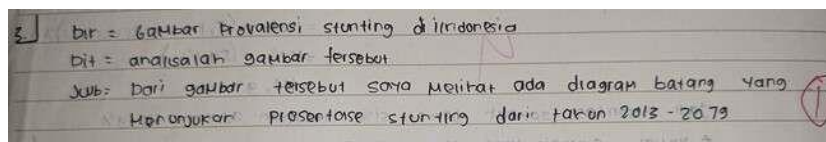 3. Dik = Gambar Prevalensi stunting di indonesia
Dit = analisalah gambar tersebut
Jwb: Dari gambar tersebut saya Melihat ada diagram batang yang
Menunjukan Presentase stunting dari tahun 2013 - 2019